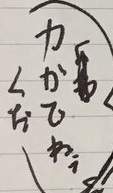 力がでねぇ
くお